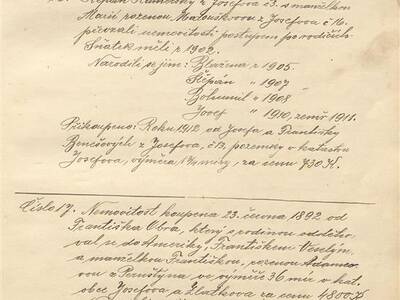 Štěpán Kamenský z Josefova č 3. s manželkou
Marií rozenou z Josefova č 16.
převzali nemovitosti postupem po rodičích.
Sňatek měli r 1902.
Narodili se jim: Blažena r 1905.
Štěpán " 1907
Bohumil " 1908
Josef " 1910, zemř. 1911.
Přikoupeno: Roku 1912 od Josefa a Františky
Benešových z Josefova, č 13, pozemky v katastru
Josefova, výměra míry, za cenu 730 K.
Číslo 17. Nemovitost koupena 23. června 1892 od
Františka Obra, který s rodinou odstěho-
val se do Ameriky, Františkem Veselým,
a manželkou Františkou, rozenou Adamco-
vou z Pernštýna ve výměře 36 mír v kat.
obce Josefova a Zlatkova za cenu 1800 K